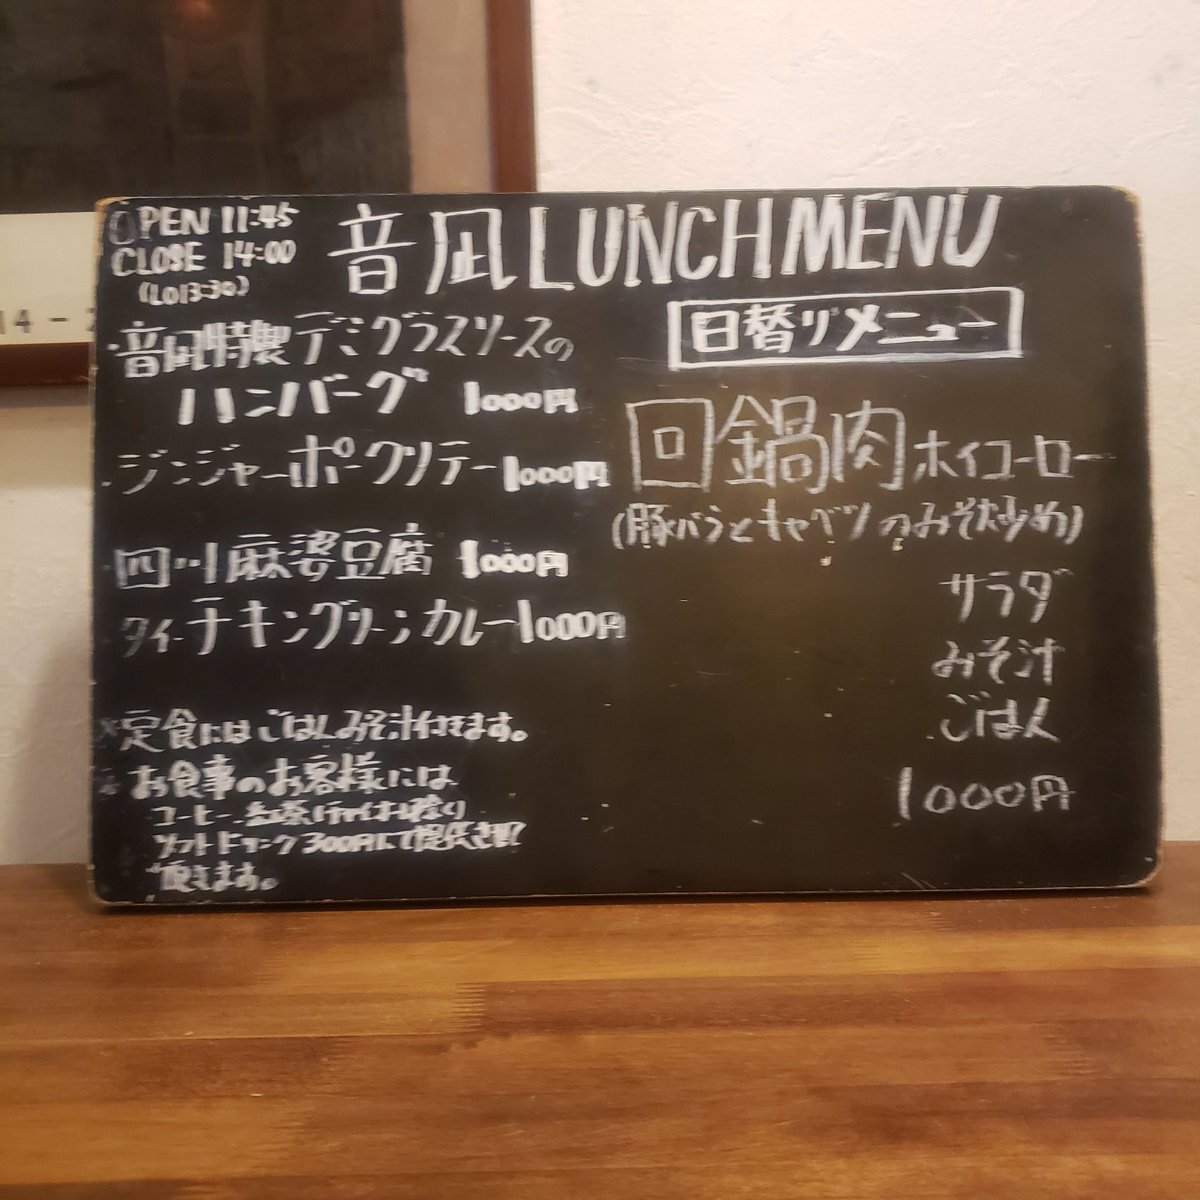 OPEN 11:45
CLOSE 14:00
(LO13:30)
音凪LUNCH MENU
・音凪特製デミグラスソースの
ハンバーグ 1000円
・ジンジャーポークソテー 1000円
・四川麻婆豆腐 1000円
タイ チキングリーンカレー 1000円
※定食にはごはんみそ汁付きます。
お食事のお客様には
コーヒー 紅茶
ソフトドリンク 300円にて提供させて
頂きます。
日替りメニュー
回鍋肉 ホイコーロー
(豚バラとキャベツのみそ炒め)
サラダ
みそ汁
ごはん
1000円
14 -